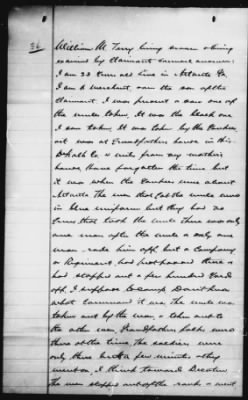 36 William M. Terry being sworn & being
examined by Claimants Counsel answers:
I am 33 years old live in Atlanta Ga.
I am a merchant, am the son of the
claimant. I was present & saw one of
the mules taken, It was the black one
I saw taken. It was taken by the Yankees,
it was at Grandfathers house in this
DeKalb Co 4 mile from my mothers
house, I have forgotten the time but
it was when the Yankees were about
Atlanta. The men that took the mule were
in blue uniform but they had no
that took the mule There was only
one man after the mule & only one
man rode him off, but a Company
or Regiment had just passed there &
had stopped out a few hundred yards
off, I suppose to camp. Dont know
what command it was. The mule was
taken out by the man & taken onto
the other men. Grandfathers folks were
there at the time. The soldiers were
only there but a few minutes they
went on I think toward Decatur
The man stepped out of the ranks & went